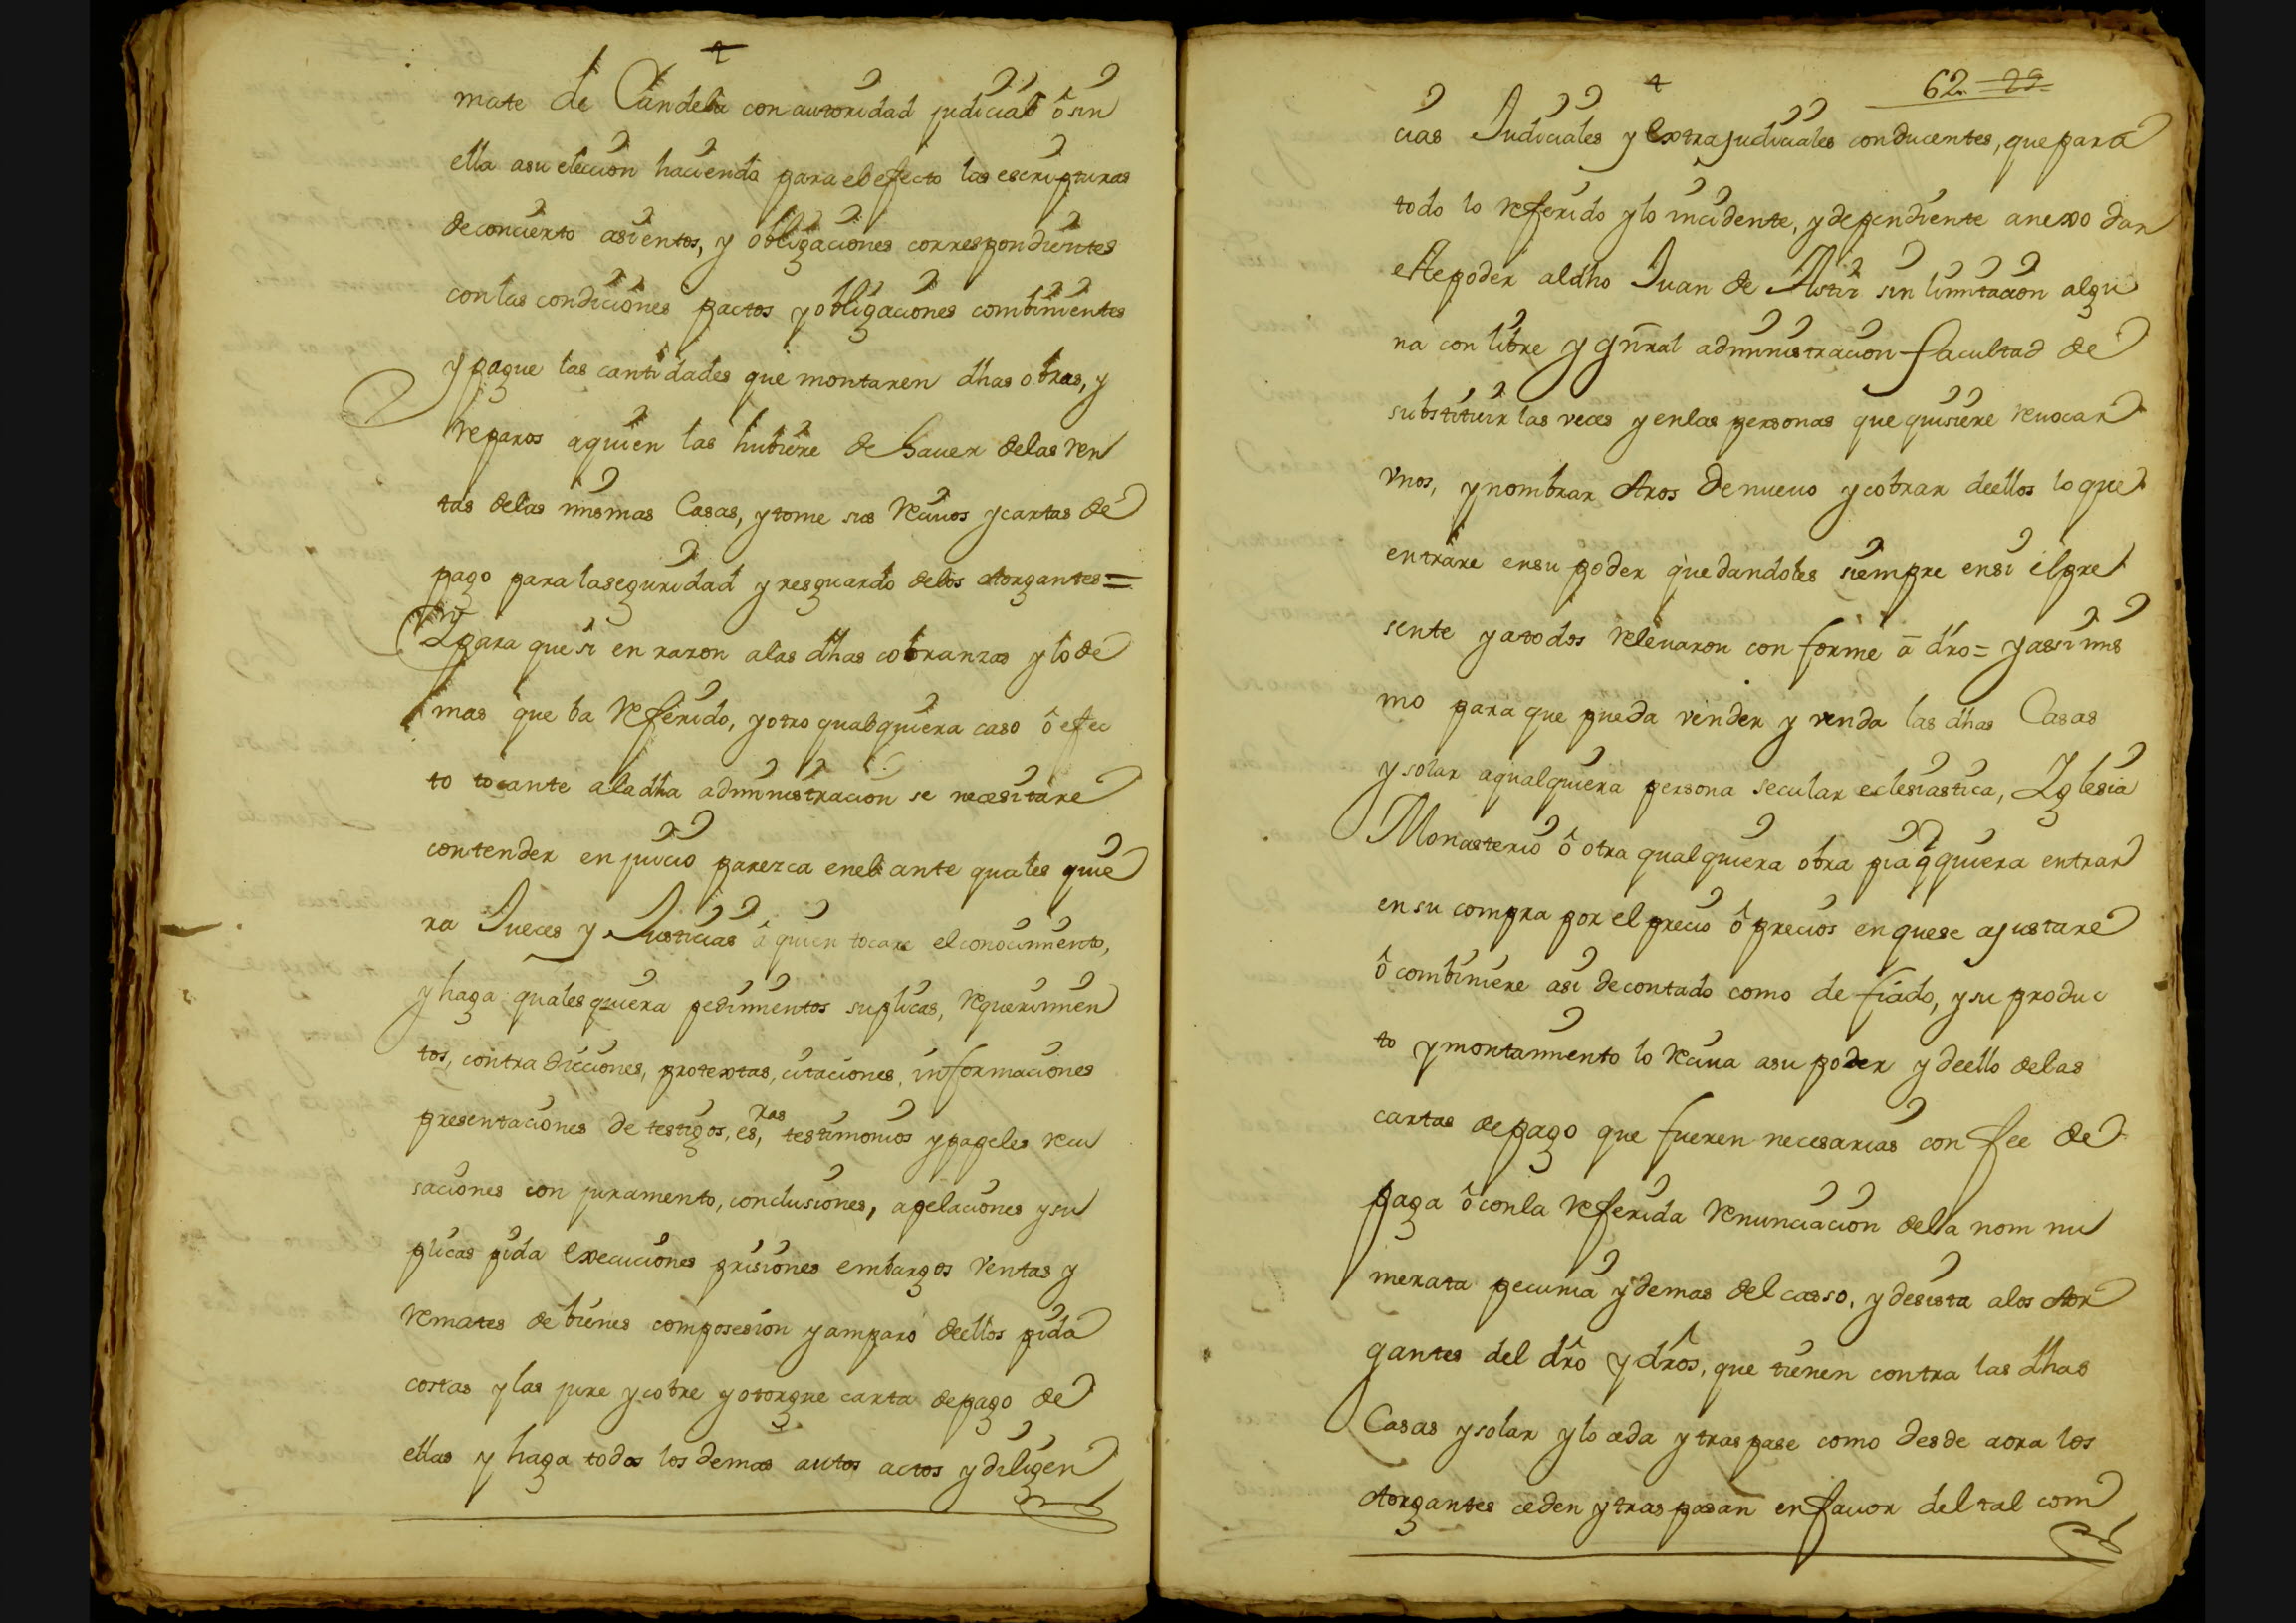 mate de Candela con autoridad judicial ô sin
ella asu eleccion haciendo para el efecto las escripturas
de concierto asientos, y obligaciones correspondientes
con las condiciones pactos y obligaciones combinientes
y pague las cantidades que montaren dhas obras, y
reparos aquien las hubiere de haver delas ren
tas delas mismas Casas, y tome sus recivos y cartas de
pago para la seguridad y resguardo delos otorgantes =
Y para que si en razon alas dhas cobranzas y lo de
mas que ba referido, y otro qualquiera caso ô efec
to tocante ala dha administracion se necesitare
contender en juicio parezca enel ante quales quie
ra Jueces y Justicias â quien tocare el conocimiento,
y haga quales quiera pedimentos suplicas, requerimien
tos, contradicciones, protextas, citaciones, informaciones
presentaciones de testigos, es,ras testimonios y papeles recu
saciones con juramento, conclusiones, apelaciones y su
plicas pida execuciones prisiones embargos ventas y
remates de bienes composesion y amparo deellos pida
costas y las jure y cobre y otorgue carta de pago de
ellas y haga todos los demas autos actos y diligen
62 29
cias Judiciales y extrajudiciales conducentes, que para
todo lo referido y lo incidente, y dependiente anexo dan
este poder aldho Juan de Astir sin limitacion algu
na con libre y gñral administracion facultad de
substituir las veces y en las personas que quisiere revocar
vnos, y nombrar otros de nuevo y cobrar deellos lo que
entrare en su poder quedandoles siempre en si el pre
sente y a todos relevaron conforme â dro = y assi mis
mo para que pueda vender y venda las dhas Casas
y solar a qualquiera persona secular eclesiastica, Yglesia
Monasterio ô otra qualquiera obra pia q quiera entrar
en su compra por el precio ô precios en quese ajustare
ô combiniere asi decontado como de fiado, y su produc
to y montamiento lo reciva asu poder y deello delas
cartas de pago que fueren necesarias con fee de
paga ô conla referida renunciacion dela nom nu
merata pecunia y demas del casso, y desista alos otor
gantes del dro y dros, que tienen contra las dhas
Casas y solar y lo ceda y traspase como desde aora los
otorgantes ceden y traspasan enfavor deltal com